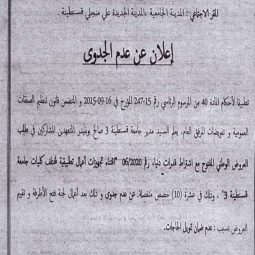 المقر الاجتماعي: المدينة الجامعية -المدينة الجديدة علي منجلي قسنطينة.
إعلان عن عدم الجدوى
تطبيقا لأحكام المادة 40 من المرسوم الرئاسي رقم 15-247 المؤرخ في 16-09-2015 و المتضمن قانون تنظيم الصفقات
العمومية و تفويضات المرفق العام، يعلم السيد مدير جامعة قسنطينة 3 صالح بوبنيدر المتعهدين المشاركين في طلب
العروض الوطني المفتوح مع اشتراط قدرات دنيا، رقم 06/2020 "اقتناء تجهيزات أعمال تطبيقية لمختلف كليات جامعة
قسنطينة 3"، وذلك في عشرة (10) حصص منفصلة عن عدم جدوى و ذلك بعد أعمال لجنة فتح الأظرفة و تقييم
العروض بسبب: عدم ضمان تمويل الحاجات.